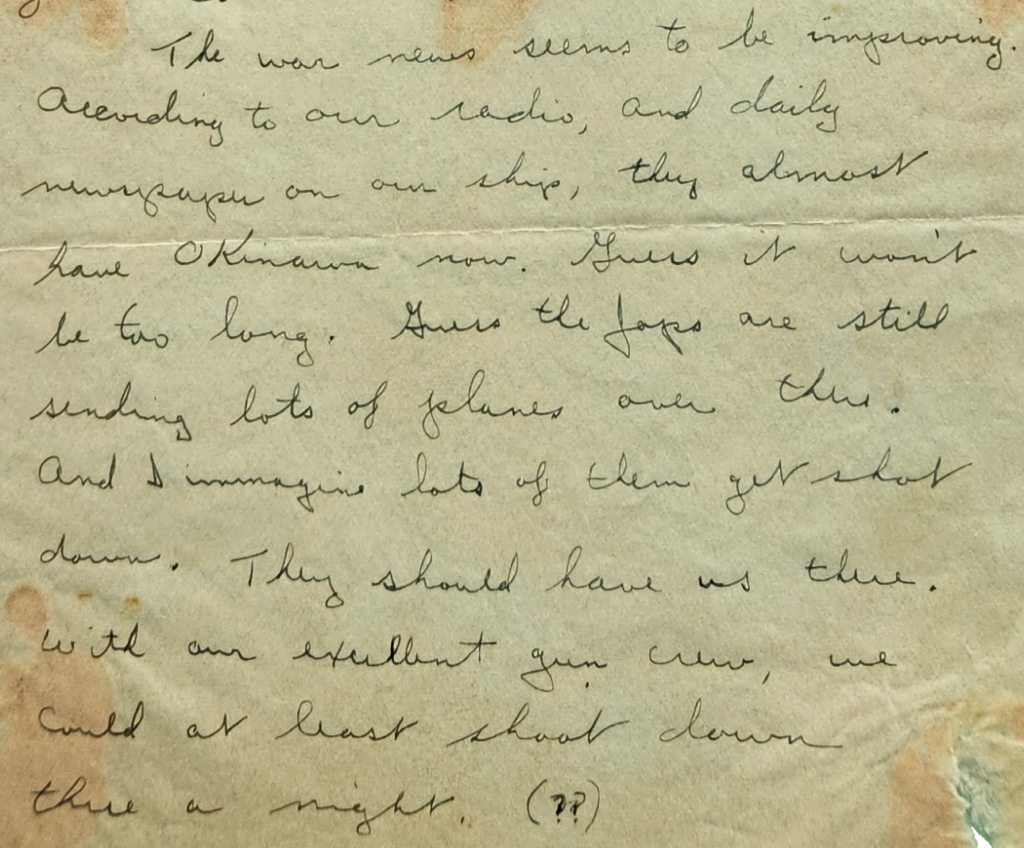 The war news seems to be improving.
According to our radio, and daily
newspaper on our ship, they almost
have OKinawa now. Guess it won't
be too long. Guess the Japs are still
sending lots of planes over there.
And I immagine lots of them get shot
down. They should have us there.
With our excellent gun crew, we
could at least shoot down
three a night. (??)